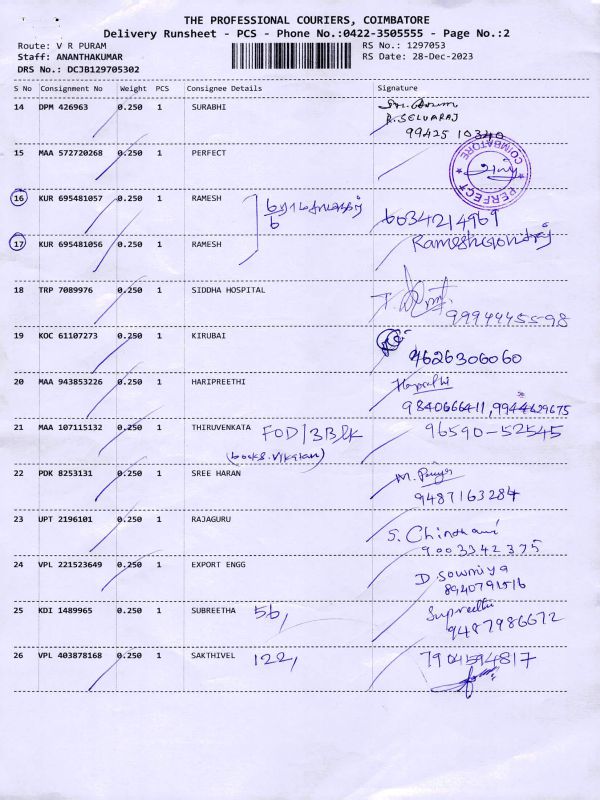 THE PROFESSIONAL COURIERS, COIMBATORE
Delivery Runsheet - PCS - Phone No.:0422-3505555 - Page No.:2
Route: V R PURAM RS No.: 1297053
Staff: ANANTHAKUMAR RS Date: 28-Dec-2023
DRS No.: DCJB129705302
S No Consignment No Weight PCS Consignee Details Signature
14 DPM 426963 0.250 1 SURABHI
R. SELVARAJ
99425 10340
15 MAA 572720268 0.250 1 PERFECT
COIMBATORE
PERFECT
16 KUR 695481057 0.250 1 RAMESH
6034214969
17 KUR 695481056 0.250 1 RAMESH
18 TRP 7089976 0.250 1 SIDDHA HOSPITAL
9994445598
19 KOC 61107273 0.250 1 KIRUBAI
9626306060
20 MAA 943853226 0.250 1 HARIPREETHI
9840666411, 9944629675
21 MAA 107115132 0.250 1 THIRUVENKATA FOD/3Blk 96590-52545
(books. Vikatan)
22 PDK 8253131 0.250 1 SREE HARAN M. Priya
9487163284
23 UPT 2196101 0.250 1 RAJAGURU S. Chinthami
9003342375
24 VPL 221523649 0.250 1 EXPORT ENGG D. Sowmiya
8940791516
25 KDI 1489965 0.250 1 SUBREETHA 56, Supreetha
9487986672
26 VPL 403878168 0.250 1 SAKTHIVEL 122, 7904594817